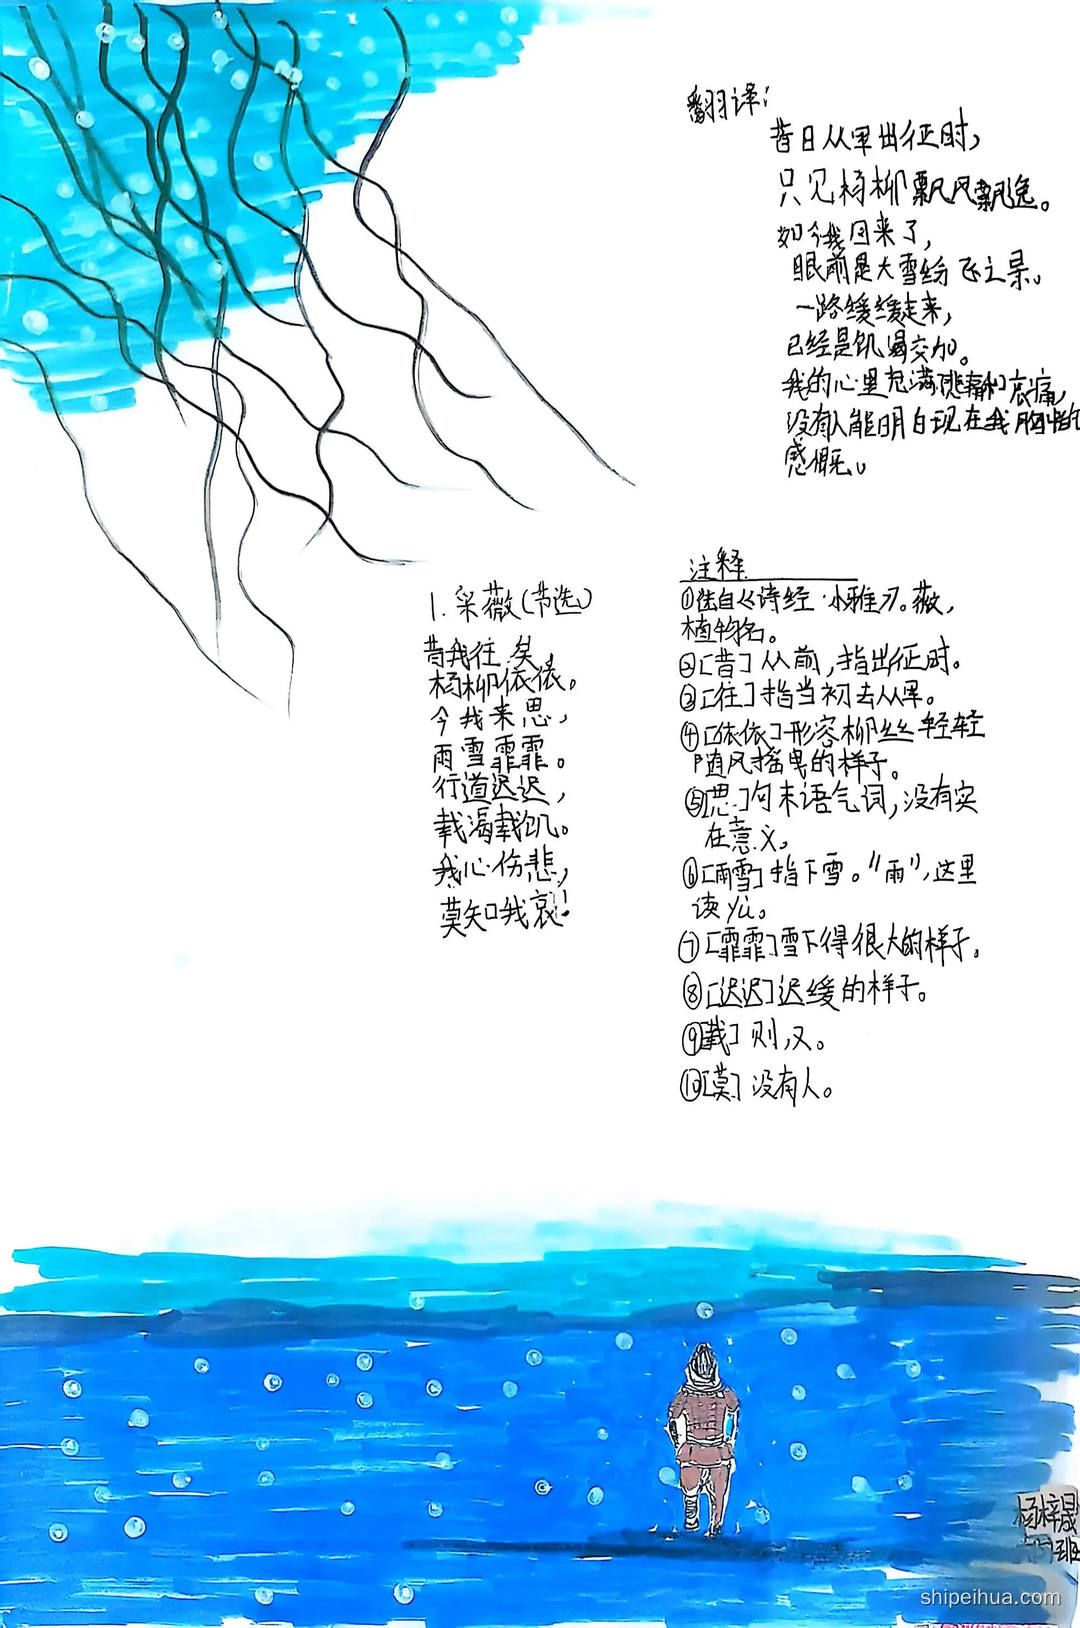 翻译：
昔日从军出征时，
只见杨柳飘风飘逸。
如今我回来了，
眼前是大雪纷飞之景。
一路缓缓走来，
已经是饥渴交加。
我的心里充满悲痛和哀痛，
没有人能明白现在我胸中的
感慨。
1.采薇（节选）
昔我往矣，
杨柳依依。
今我来思，
雨雪霏霏。
行道迟迟，
载渴载饥。
我心伤悲，
莫知我哀！
注释
①选自《诗经·小雅》。薇，
植物名。
②[昔]从前，指出征时。
③[往]指当初去从军。
④[依依]形容柳丝轻轻
随风摇曳的样子。
⑤[思]句末语气词，没有实
在意义。
⑥[雨雪]指下雪。“雨”，这里
读yù。
⑦[霏霏]雪下得很大的样子。
⑧[迟迟]迟缓的样子。
⑨[载]则，又。
⑩[莫]没有人。
杨梓晟
班
shipeihua.com